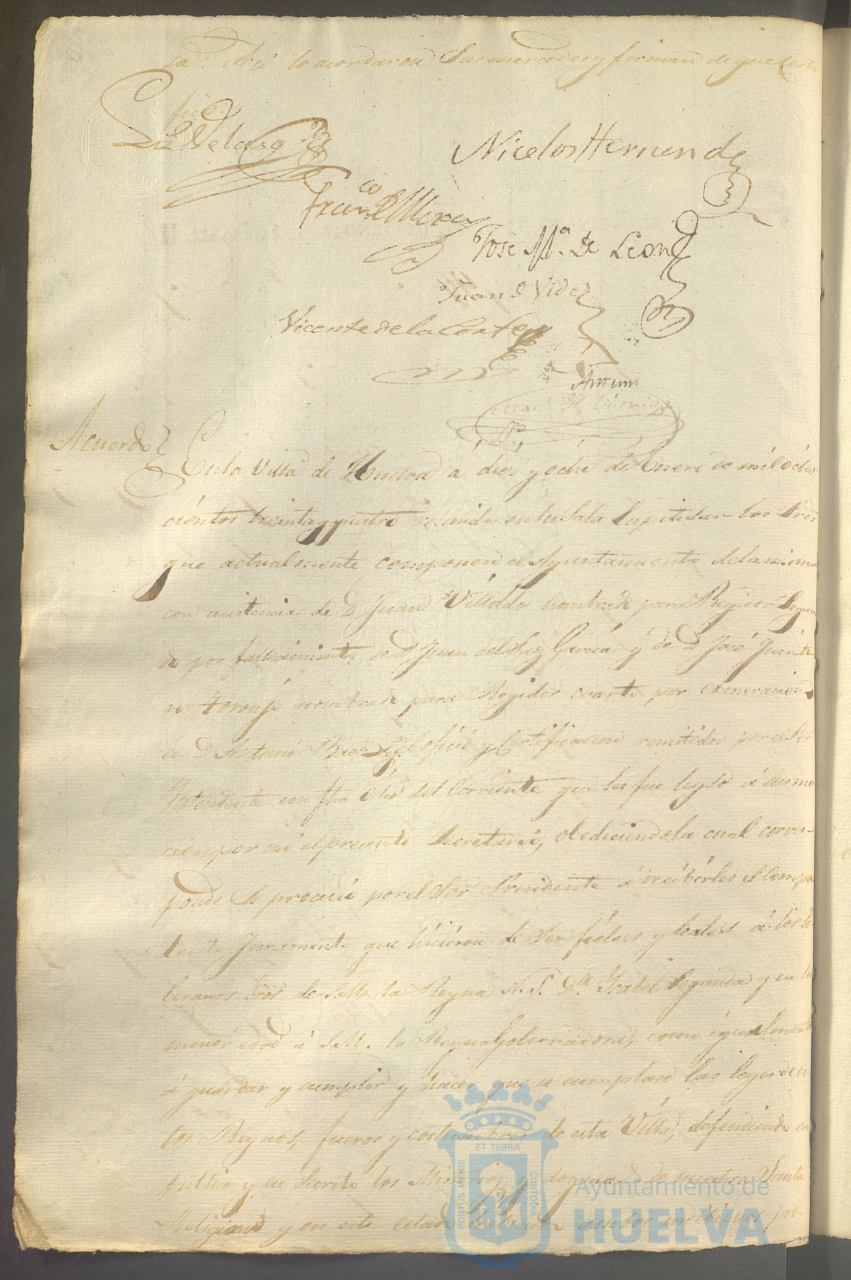 sa. Asi lo acordaron Sus mercedes y firman de que certi
fico
Luis Velasq
Nicolas Hernande
Fran.co
Jose M.a de Leon
Juan de Vides
Vicente de la Corte
Antemi
Acuerdo
En la Villa de Huelva á dies y ocho de Enero de mil ocho
cientos treinta y quatro reunidos en su Sala Capitular los Sres
que actualmente componen el Ayuntamiento de la misma
con asistencia de D Juan nombrado para Regidor Segun
do por fallecimiento de D Juan de la Garcia y de D José
nombrado para Regidor cuarto por exoneracion
de D Antonio oficio y Certificacion remitidos por el Sor
Intendente con fha del Corriente que les fue leydo á sus mer
cedes por mi el presente Secretario, obedeciendola cual corres-
ponde se procedió por el Sor Presidente á recibirles el compe
Juramento que hicieron de ser fieles y leales á los So
beranos de S.M. la Reyna N.S. D.a Isabel Segunda y en su
menor edad á S.M. la Reyna Gobernadora, como igualmente
á guardar y cumplir y hacer que se cumplan las leyes de es
tos Reynos, fueros y costumbres de esta Villa, defendiendo en
publico y en secreto los Misterios y dogmas de nuestra Santa
Religion y en este estado
ET TERRÆ
PORTUS MARIS
CUSTODIA
Ayuntamiento de
HUELVA